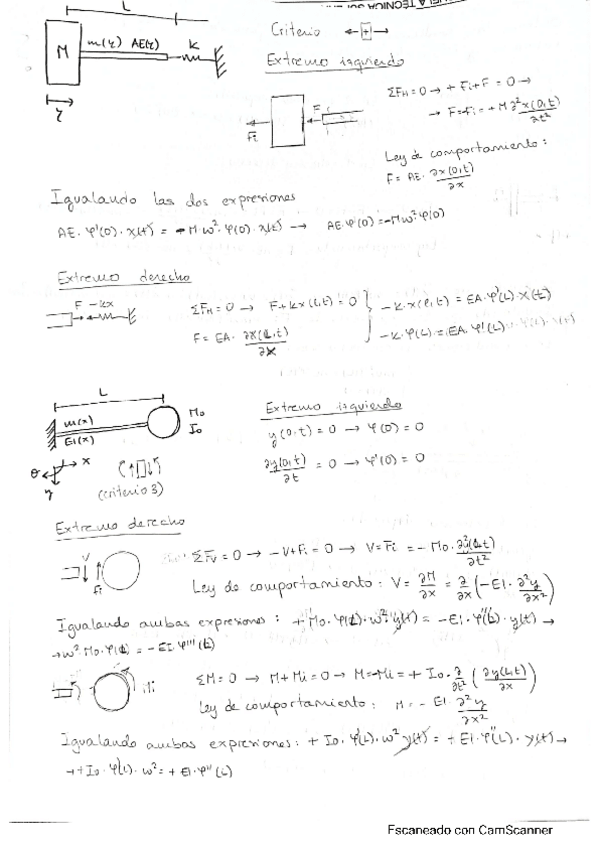 L
M m(x) AE(x) k
Criterio ←[+]→
Extremo izquierdo
ΣF_H = 0 → + Fi + F = 0 →
→ F = -Fi = + M ∂²x(0,t)/∂t²
F
Fi
Ley de comportamiento:
F = AE · ∂x(0,t)/∂x
Igualando las dos expresiones
AE · φ'(0) · x(t) = -M·ω²·φ(0)·x(t) → AE·φ'(0) = -Mω²φ(0)
Extremo derecho
F -kx
ΣF_H = 0 → F + kx(L,t) = 0
F = EA · ∂x(L,t)/∂x
-k·x(L,t) = EA·φ'(L)·x(t)
-k·φ(L) = EA·φ'(L)
L
m(x) Mo
EI(x) Io
θ x
y
(criterio 3)
Extremo izquierdo
y(0,t) = 0 → φ(0) = 0
∂y(0,t)/∂t = 0 → φ'(0) = 0
Extremo derecho
V
Fi
ΣFv = 0 → -V + Fi = 0 → V = Fi = - Mo · ∂²y(L,t)/∂t²
Ley de comportamiento: V = ∂M/∂x = ∂/∂x (-EI · ∂²y/∂x²)
Igualando ambas expresiones: + Mo·φ(L)·ω²·y(t) = -EI·φ'''(L)·y(t) →
→ ω²·Mo·φ(L) = -EI·φ'''(L)
Mi
ΣM = 0 → M + Mi = 0 → M = -Mi = + Io · ∂/∂t² (∂y(L,t)/∂x)
Ley de comportamiento: M = - EI · ∂²y/∂x²
Igualando ambas expresiones: + Io·φ'(L)·ω² y(t) = + EI·φ''(L)·y(t) →
→ + Io·φ'(L)·ω² = + EI·φ''(L)
Escaneado con CamScanner